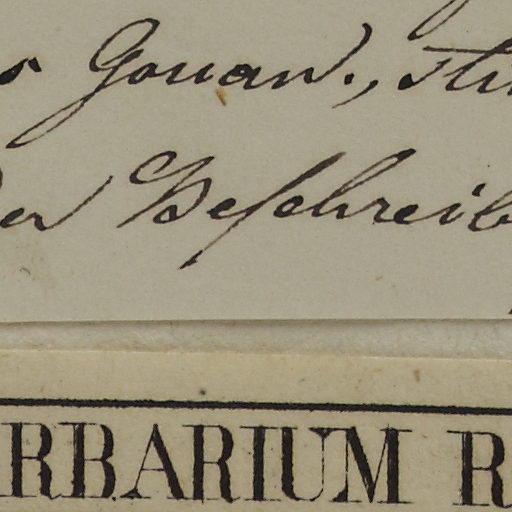 Gouan., sti
der Beschreib
RBARIUM R